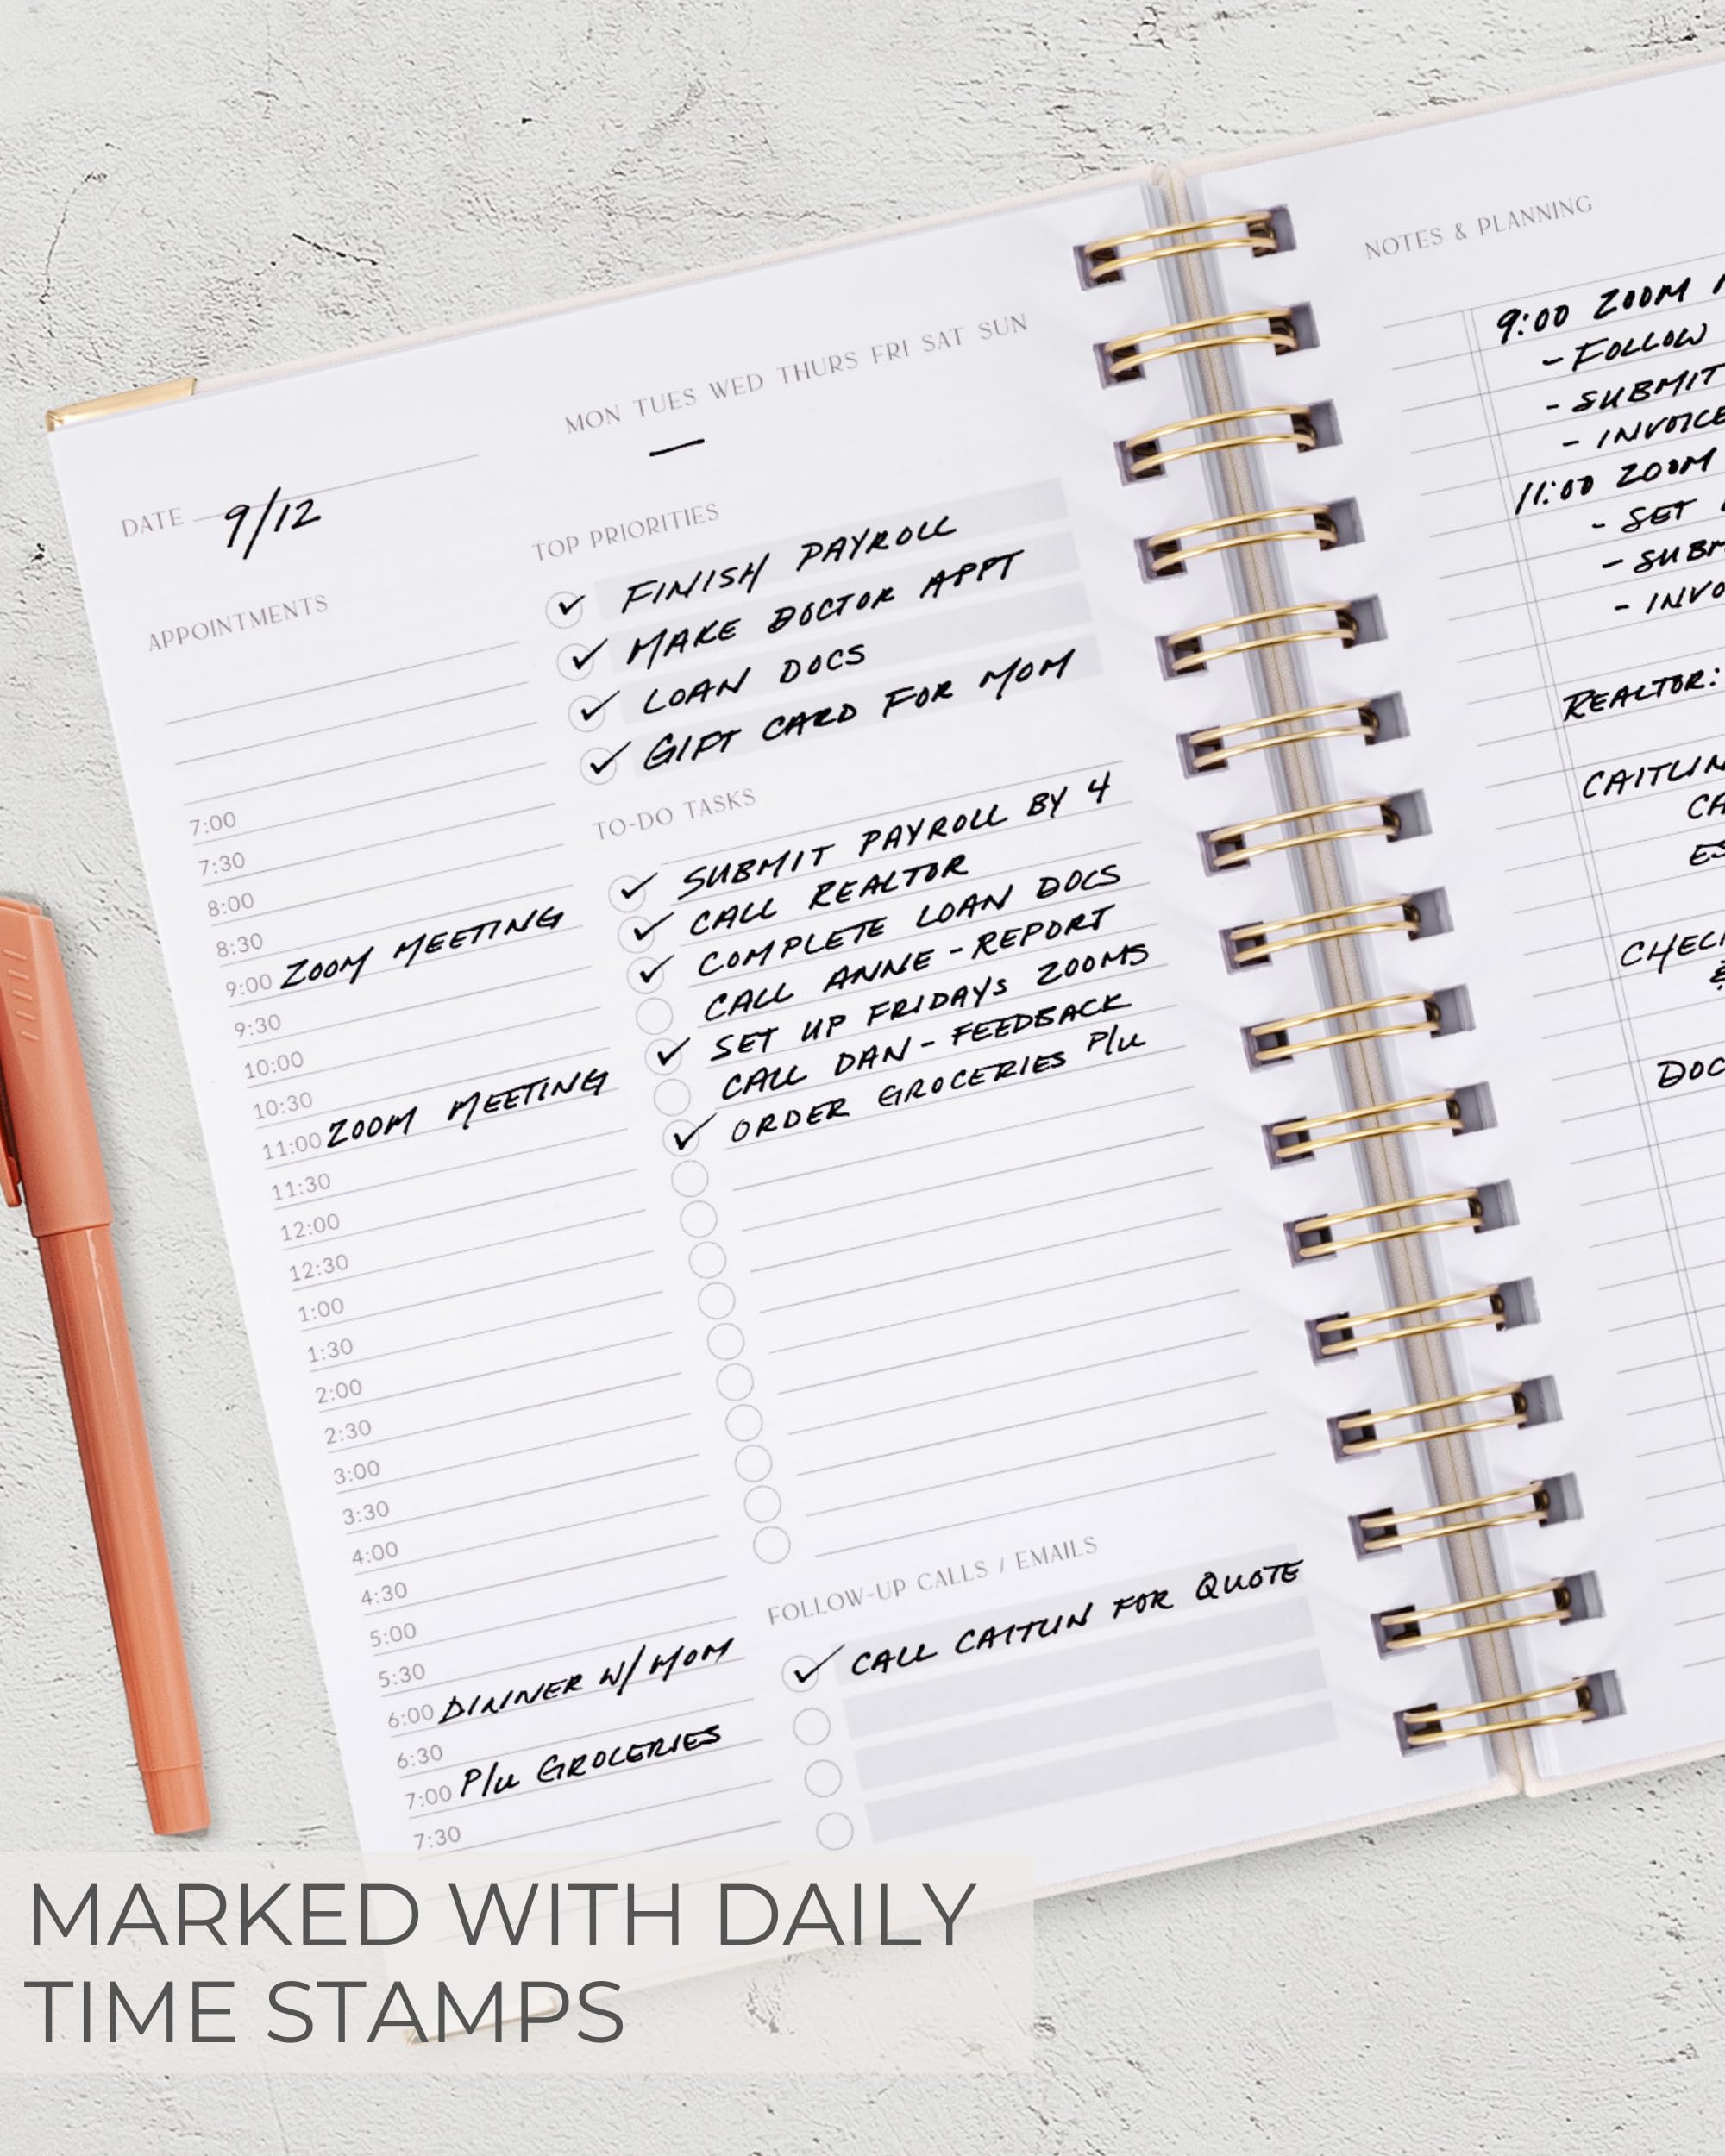 MON TUES WED THURS FRI SAT SUN
DATE 9/12
APPOINTMENTS
7:00
7:30
8:00
8:30
9:00 ZOOM MEETING
9:30
10:00
10:30
11:00 ZOOM MEETING
11:30
12:00
12:30
1:00
1:30
2:00
2:30
3:00
3:30
4:00
4:30
5:00
5:30
6:00 DINNER W/ MOM
6:30
7:00 P/U GROCERIES
7:30
TOP PRIORITIES
✓ FINISH PAYROLL
✓ MAKE DOCTOR APPT
✓ LOAN DOCS
✓ GIFT CARD FOR MOM
TO-DO TASKS
✓ SUBMIT PAYROLL BY 4
✓ CALL REALTOR
✓ COMPLETE LOAN DOCS
CALL ANNE - REPORT
✓ SET UP FRIDAYS ZOOMS
CALL DAN - FEEDBACK
✓ ORDER GROCERIES P/U
FOLLOW-UP CALLS / EMAILS
✓ CALL CAITLIN FOR QUOTE
NOTES & PLANNING
9:00 ZOOM
- FOLLOW
- SUBMIT
- INVOICE
11:00 ZOOM
- SET
- SUBM
- INVO
REALTOR:
CAITLIN
CA
ES
CHECK
&
DOC
MARKED WITH DAILY
TIME STAMPS